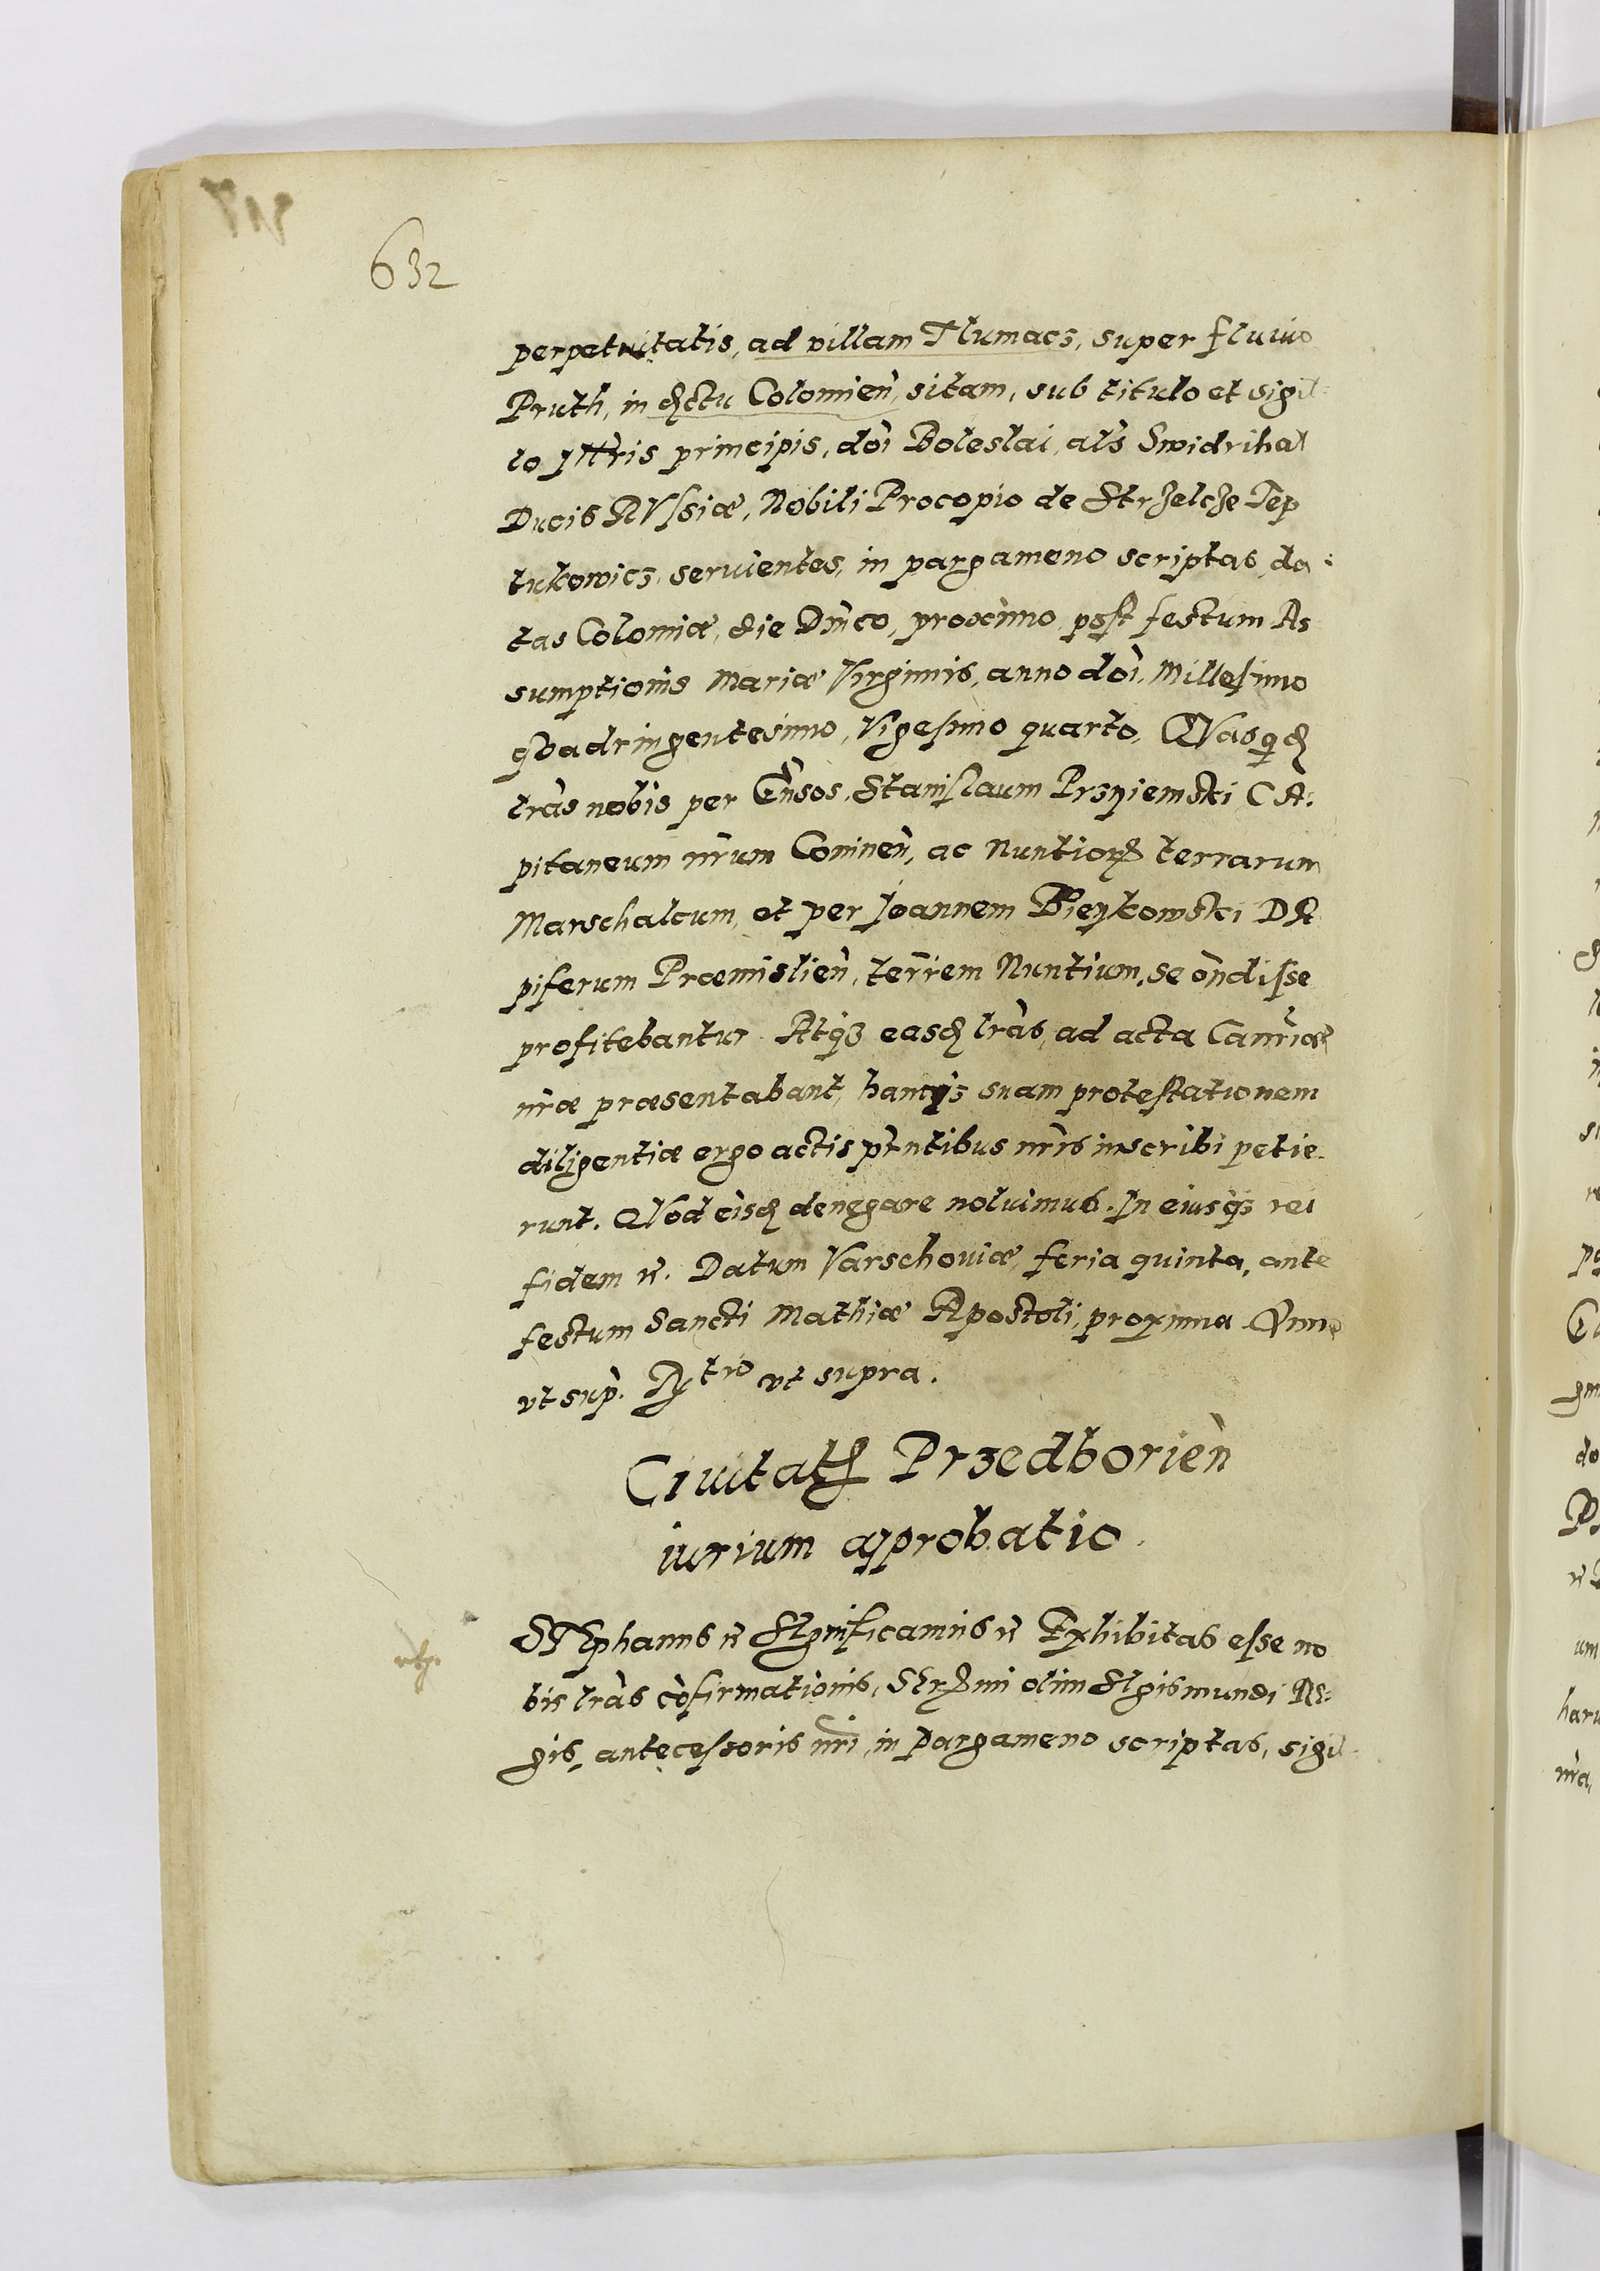 632
perpetuitatis, ad villam Tlumacz, super fluuio
Pruth, in dctu Colomien, sitam, sub titulo et sigil
lo Illris principis, doi Boleslai, als Swidrihal
Ducis RVssiæ, Nobili Procopio de Strzelcze Tep
tukowicz, seruientes, in pargameno scriptas, da:
tas Colomiæ, die Dnico, proximo post festum As
sumptionis Mariæ Virginis, anno doi, Millesimo
qvadringentesimo, Vigesimo quarto, QVasqd
lras nobis per Gnsos, Stanislaum Przyiemski CA:
pitaneum nrum Coninen, ac Nuntiorum terrarum
Marschalcum, et per Joannem Bieykowski DA
piferum Præmislien, terrem Nuntium, se ondisse
profitebantur. Atqz easd lras, ad acta Canriæ
nræ præsentabant, hancqz suam protestationem
diligentiæ ergo actis pntibus nris inscribi petie.
runt. QVod eisd denegare noluimus. In eiusqz rei
fidem &. Datum Varschouiæ, feria quinta, ante
festum Sancti Mathiæ Apostoli, proxima Anno
vt sup. Rtro vt supra.
Ciuitatis Przedborien
iurium approbatio.
STEphanus & SIgnificamus & Exhibitas esse no
bis lras cofirmationis, Srmi olim SIgismundi RE:
gis, antecessoris nri, in pargameno scriptas, sigil